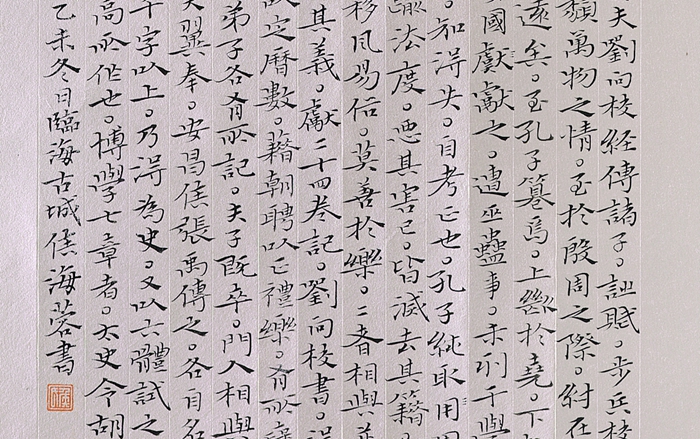 夫劉向校經傳諸子。詩賦。步兵校
類萬物之情。至於殷周之際。紂在
遠矣。至孔子篹焉。上斷於堯。下
國獻獻之。遭巫蠱事。未列于學
。知得失。自考正也。孔子純取周
踰法度。惡其害己。皆滅去其籍
移風易俗。莫善於樂。二者相與並
其義。獻二十四卷記。劉向校書。得
以定曆數。藉朝聘以正禮樂。有所褒
弟子各有所記。夫子既卒。門人相與
夫翼奉。安昌侯張禹傳之。各自名
千字以上。乃得為史。又以六體試之
高所作也。博學七章者。太史令胡
乙未冬日臨海古城侯海蓉書